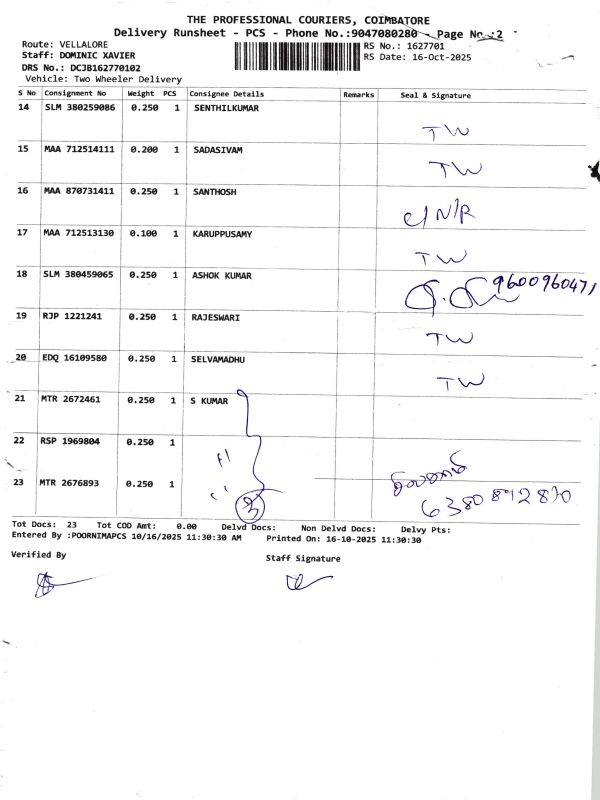 THE PROFESSIONAL COURIERS, COIMBATORE
Delivery Runsheet - PCS - Phone No.:9047080280 - Page No.:2
Route: VELLALORE
RS No.: 1627701
Staff: DOMINIC XAVIER
RS Date: 16-Oct-2025
DRS No.: DCJB162770102
Vehicle: Two Wheeler Delivery
S No Consignment No Weight PCS Consignee Details Remarks Seal & Signature
14 SLM 380259086 0.250 1 SENTHILKUMAR
TW
15 MAA 712514111 0.200 1 SADASIVAM
TW
16 MAA 870731411 0.250 1 SANTHOSH
C/N/R
17 MAA 712513130 0.100 1 KARUPPUSAMY
TW
18 SLM 380459065 0.250 1 ASHOK KUMAR
9600960471
19 RJP 1221241 0.250 1 RAJESWARI
TW
20 EDQ 16109580 0.250 1 SELVAMADHU
TW
21 MTR 2672461 0.250 1 S KUMAR
22 RSP 1969804 0.250 1
23 MTR 2676893 0.250 1
6380892870
Tot Docs: 23 Tot COD Amt: 0.00 Delvd Docs: Non Delvd Docs: Delvy Pts:
Entered By :POORNIMAPCS 10/16/2025 11:30:30 AM Printed On: 16-10-2025 11:30:30
Verified By
Staff Signature